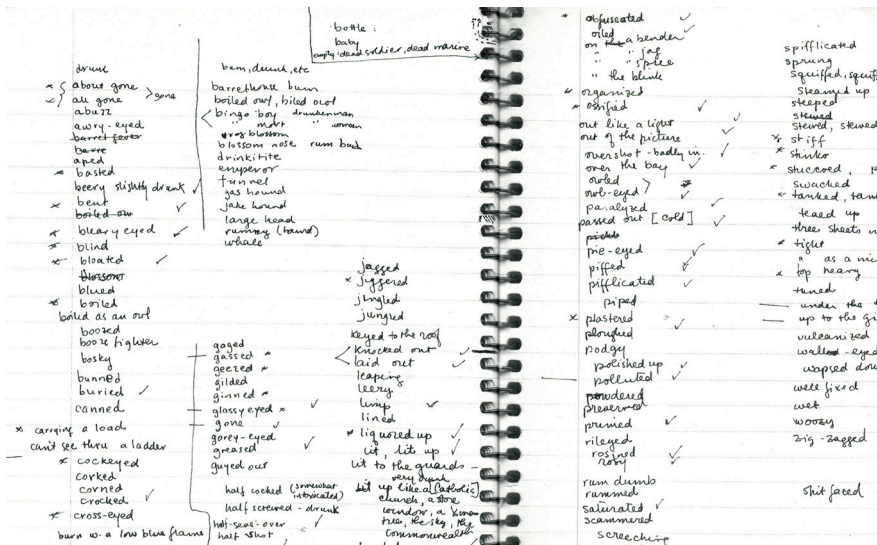 bottle:
baby
empty: dead soldier, dead marine
drunk
about gone
all gone
gone
abuzz
awry-eyed
barrel fever
barre
aped
basted
beery slightly drunk
bent
boiled ow
bleary eyed
blind
bloated
blossom
blued
boiled
boiled as an owl
boozed
booze fighter
bosky
bunned
buried
canned
carrying a load
can't see thru a ladder
cockeyed
corked
corned
crocked
cross-eyed
burn w. a low blue flame
bum, drunk, etc
barrelhouse bum
boiled owl, biled owl
bingo boy drunken man
" mort " woman
grog blossom
blossom nose rum bud
drinkitite
emperor
funnel
gas hound
jake hound
large head
rummy (hound)
whale
gaged
gassed
geezed
gilded
ginned
glassy eyed
gone
gorey-eyed
greased
guyed out
half cocked (somewhat intoxicated)
half screwed - drunk
half-seas-over
half shot
jagged
jiggered
jingled
jungled
keyed to the roof
knocked out
laid out
leaping
leery
limp
lined
liquored up
lit, lit up
lit to the guards - very drunk
lit up like a [Catholic]
church, a store
window, a Xmas
tree, the sky, the
commonwealth
obfuscated
oiled
on a bender
" " jag
" " spree
" the blink
organized
ossified
out like a light
out of the picture
overshot - badly in.
over the bay
owled
owl-eyed
paralyzed
passed out [cold]
pickl
pie-eyed
piffed
pifflicated
piped
plastered
ploughed
podgy
polished up
polluted
powdered
preserved
primed
rileyed
rosined
rosy
rum dumb
rummed
saturated
scammered
screeching
spifflicated
sprung
squiffed, squif
steamed up
steeped
stewed
stewed, stewed
stiff
stinko
stuccoed, p
swacked
tanked, tank
teaed up
three sheets in
tight
" as a mi
top heavy
tuned
under the
up to the gi
vulcanized
walled-eyed
wapsed dow
well fixed
wet
woozy
zig-zagged
shit faced